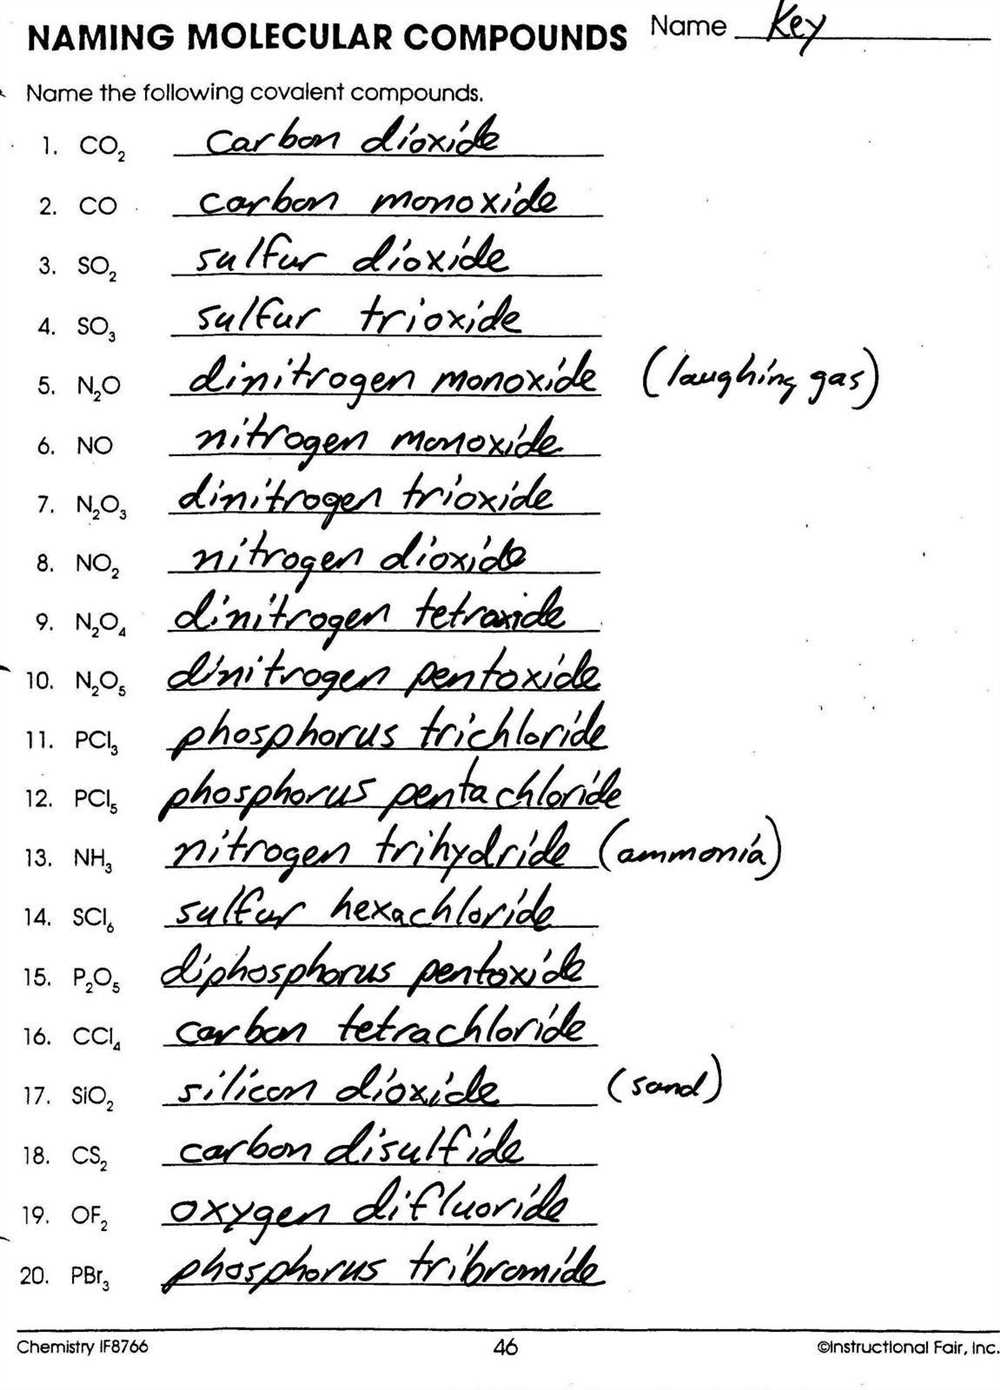 NAMING MOLECULAR COMPOUNDS Name Key
Name the following covalent compounds.
1. CO₂ carbon dioxide
2. CO carbon monoxide
3. SO₂ sulfur dioxide
4. SO₃ sulfur trioxide
5. N₂O dinitrogen monoxide (laughing gas)
6. NO nitrogen monoxide
7. N₂O₃ dinitrogen trioxide
8. NO₂ nitrogen dioxide
9. N₂O₄ dinitrogen tetroxide
10. N₂O₅ dinitrogen pentoxide
11. PCl₃ phosphorus trichloride
12. PCl₅ phosphorus pentachloride
13. NH₃ nitrogen trihydride (ammonia)
14. SCl₆ sulfur hexachloride
15. P₂O₅ diphosphorus pentoxide
16. CCl₄ carbon tetrachloride
17. SiO₂ silicon dioxide (sand)
18. CS₂ carbon disulfide
19. OF₂ oxygen difluoride
20. PBr₃ phosphorus tribromide
Chemistry IF8766 46 ©Instructional Fair, Inc.